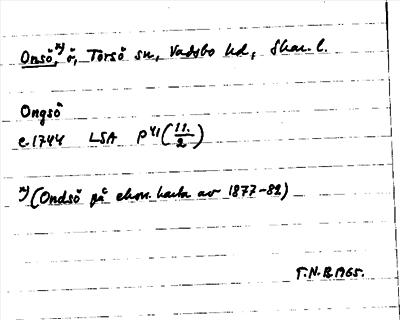 Onsö, x) ö, Torsö sn, Vadsbo hd, Skar. l.
Ongsö
c. 1744 LSA P 41 (11/2)
x) (Ondsö på ekon. karta av 1877-82)
T.N.B. 1965.